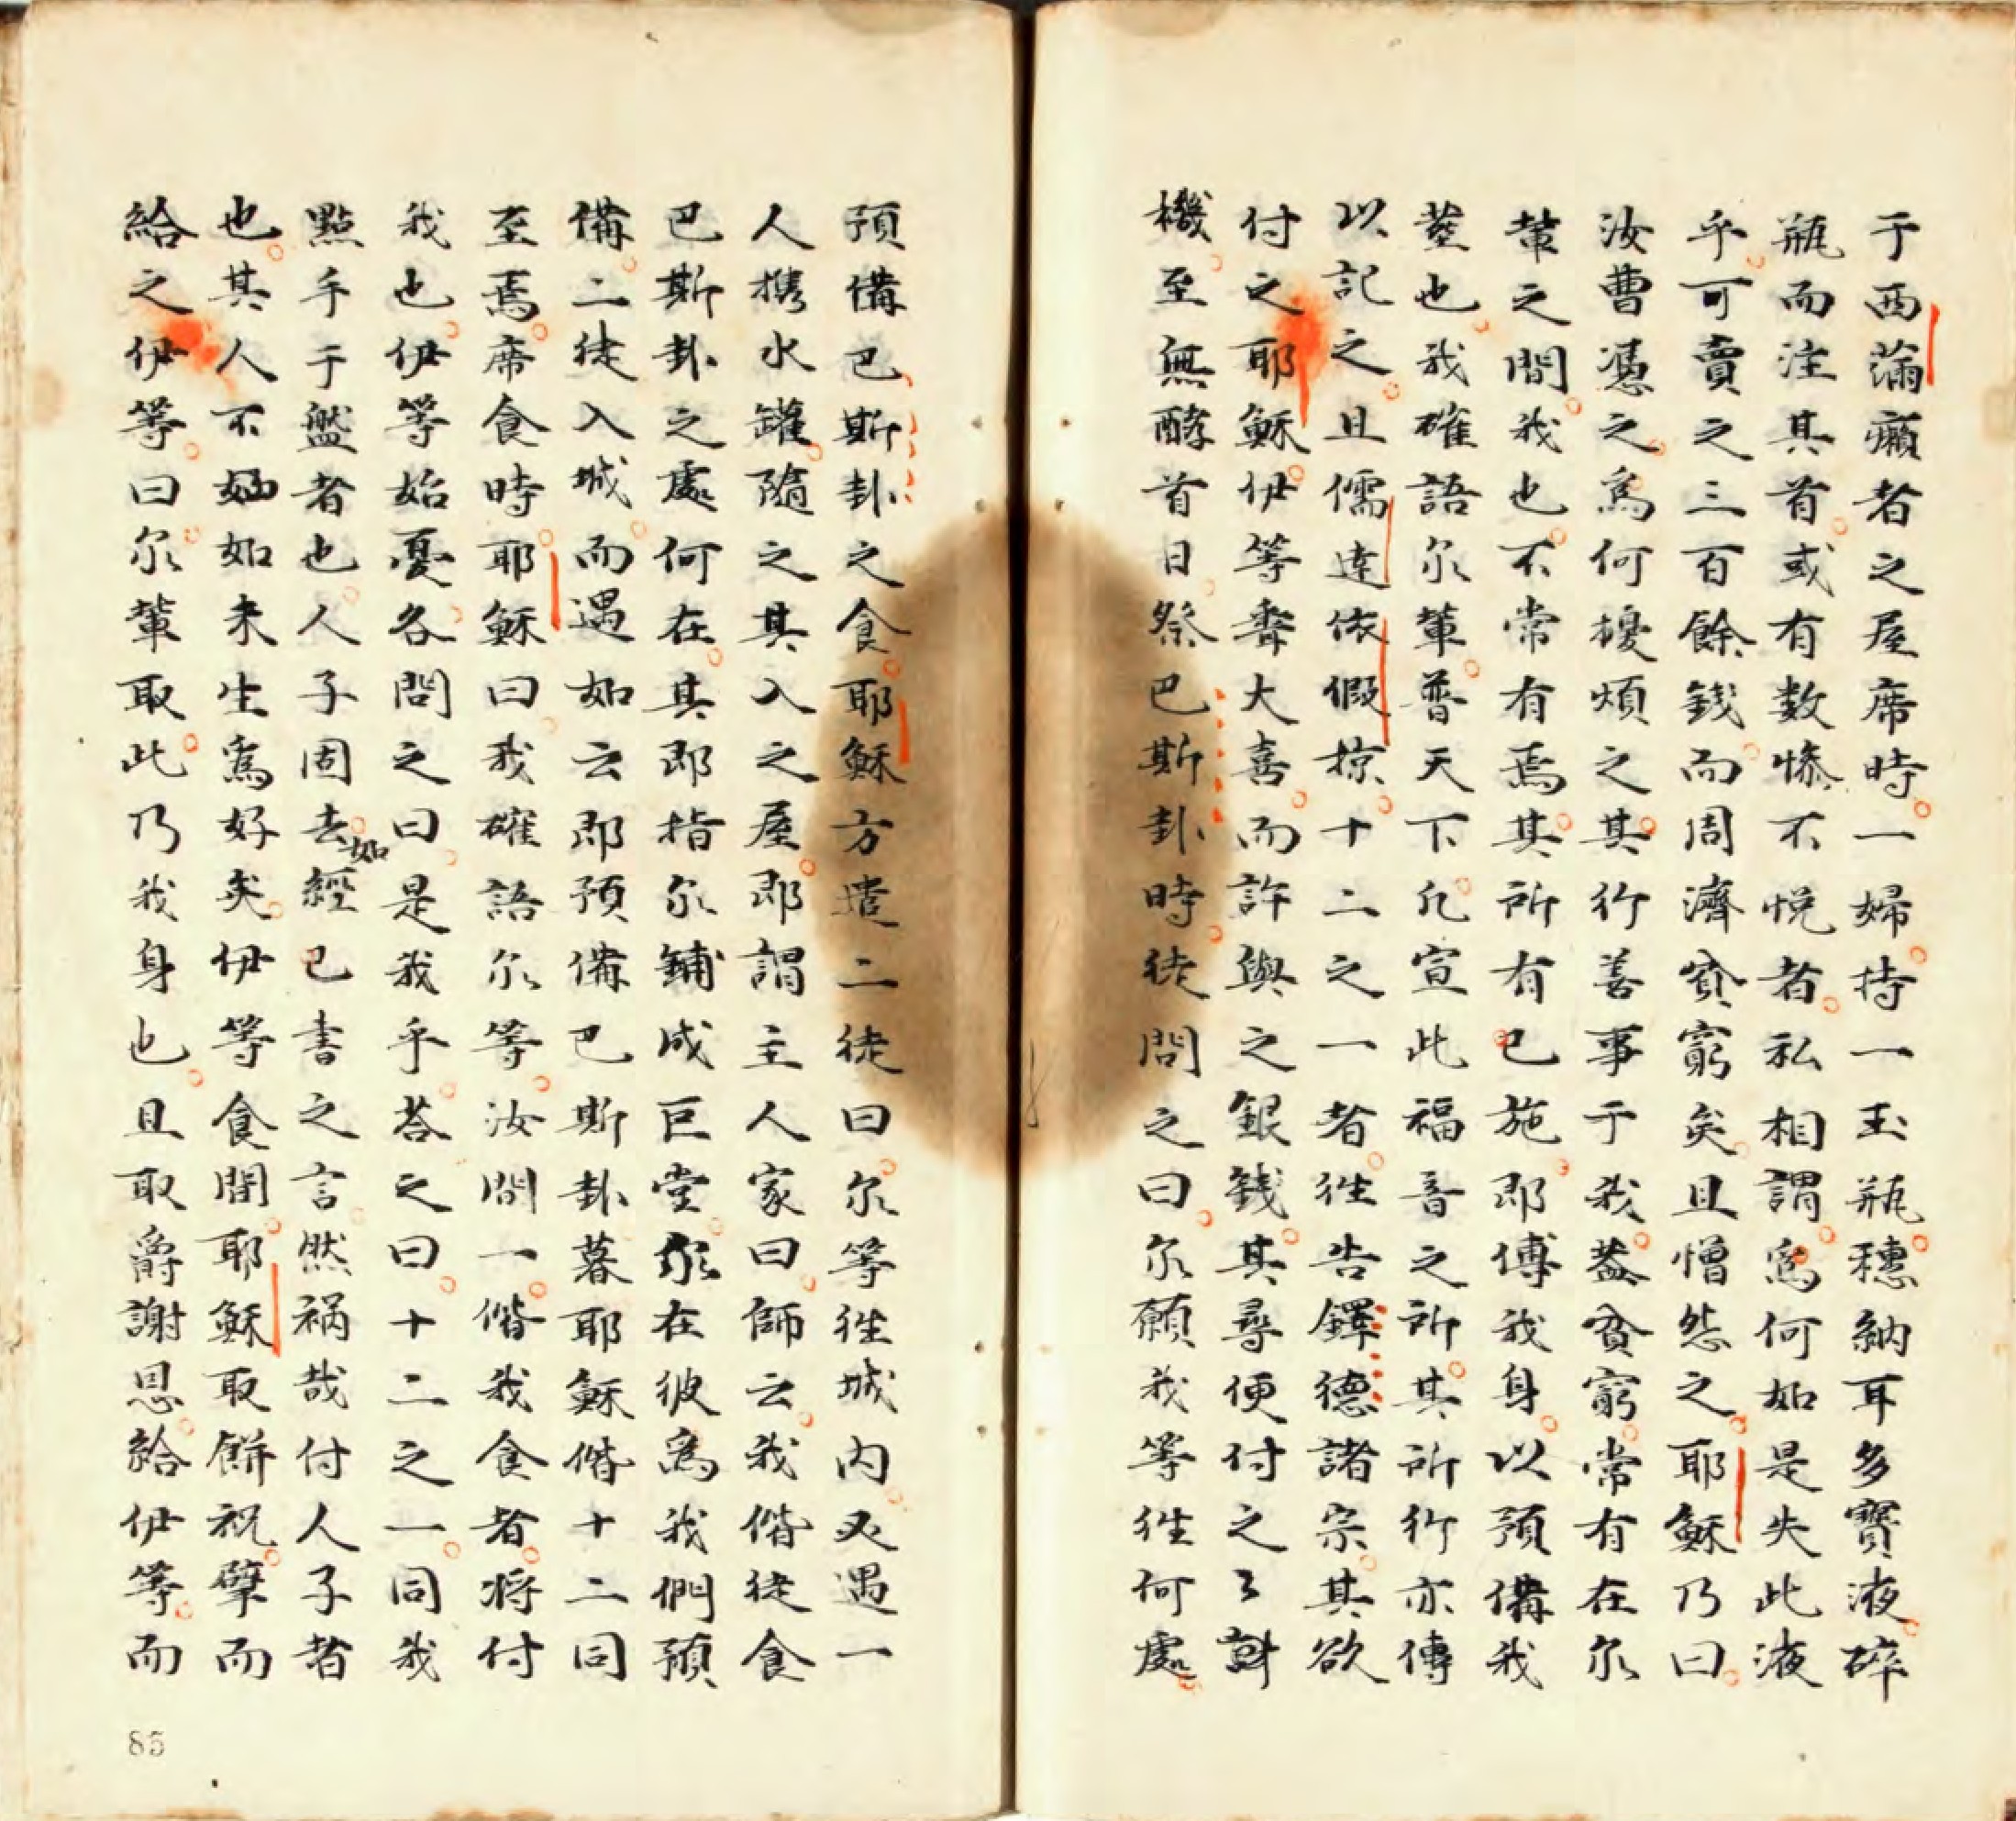 于西蒲癩者之屋席時一婦持一玉瓶穗納耳多寶液碎
瓶而注其首或有数惨不悦者私相謂為何如是失此液
乎可賣之三百餘錢而周濟貧窮矣且憎怨之耶穌乃曰
汝曹慿之為何擾煩之其行善事于我葢貧窮常有在尔
輩之間我也不常有焉其所有已施即傅我身以預備我
塟也我確語尔輩普天下凢宣此福音之所其所行亦傳
以記之且儒達依假掠十二之一者徃告鐸德諸宗其欲
付之耶穌伊等聽大喜而許與之銀銭其尋便付之
機至無酵首日祭巴斯卦時徒問之曰尔願我等徃何處
預備巴斯卦之食耶穌方遣二徒曰尔等徃城内又遇一
人攜水罐隨之其入之屋即謂主人家曰師云我偕徒食
巴斯卦之處何在其即指尔鋪成巨堂尔在彼為我們預
備二徒入城而遇如云即預備巴斯卦暮耶穌偕十二同
至焉席食時耶穌曰我確語尔等汝間一偕我食者将付
我也伊等始憂各問之曰是我乎荅之曰十二之一同我
點手于盤者也人子固去如經已書之言然禍哉付人子者
也其人不如未生為好矣伊等食間耶穌取餅祝擘而
給之伊等曰尔輩取此乃我身也且取爵謝恩給伊等而
85